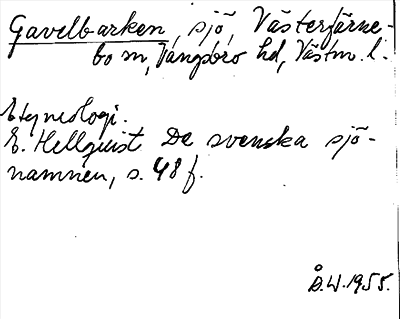 Gavelbarken, sjö, Västerfärne-
bo sn, Vangsbro hd, Västm. l.
Etymologi.
E. Hellquist De svenska sjö-
namnen, s. 48 f.
Å.W. 1955.